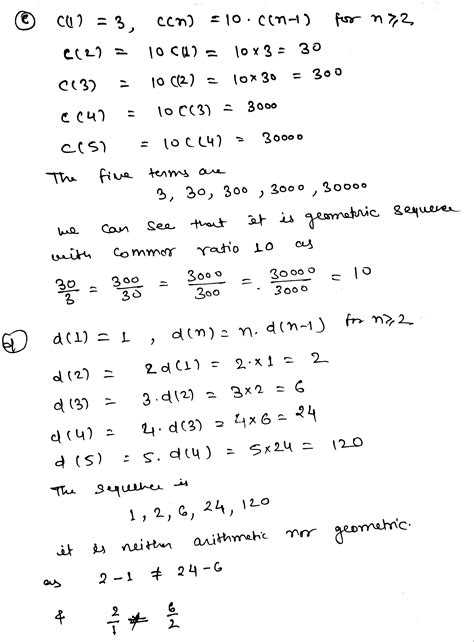 (c) c(1) = 3, c(n) = 10·c(n-1) for n≥2
c(2) = 10c(1) = 10×3 = 30
c(3) = 10c(2) = 10×30 = 300
c(4) = 10c(3) = 3000
c(5) = 10c(4) = 30000
The five terms are
3, 30, 300, 3000, 30000
we can see that it is geometric sequence
with common ratio 10 as
30/3 = 300/30 = 3000/300 = 30000/3000 = 10
(d) d(1) = 1, d(n) = n·d(n-1) for n≥2
d(2) = 2d(1) = 2·×1 = 2
d(3) = 3·d(2) = 3×2 = 6
d(4) = 4·d(3) = 4×6 = 24
d(5) = 5·d(4) = 5×24 = 120
The sequence is
1, 2, 6, 24, 120
it is neither arithmetic nor geometric.
as 2-1 ≠ 24-6
& 2/1 ≠ 6/2